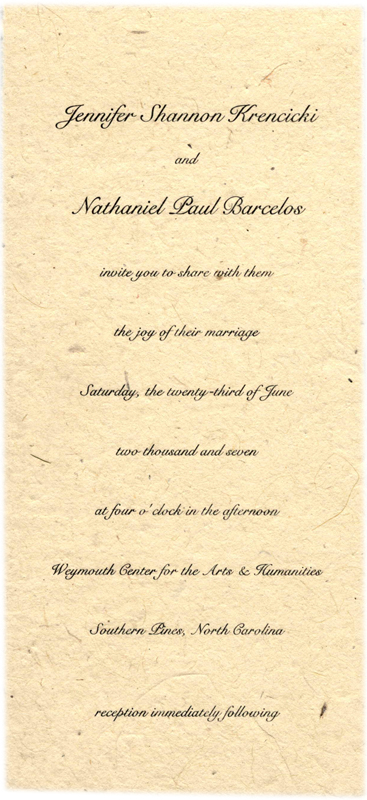 Jennifer Shannon Krencicki
and
Nathaniel Paul Barcelos
invite you to share with them
the joy of their marriage
Saturday, the twenty-third of June
two thousand and seven
at four o'clock in the afternoon
Weymouth Center for the Arts & Humanities
Southern Pines, North Carolina
reception immediately following